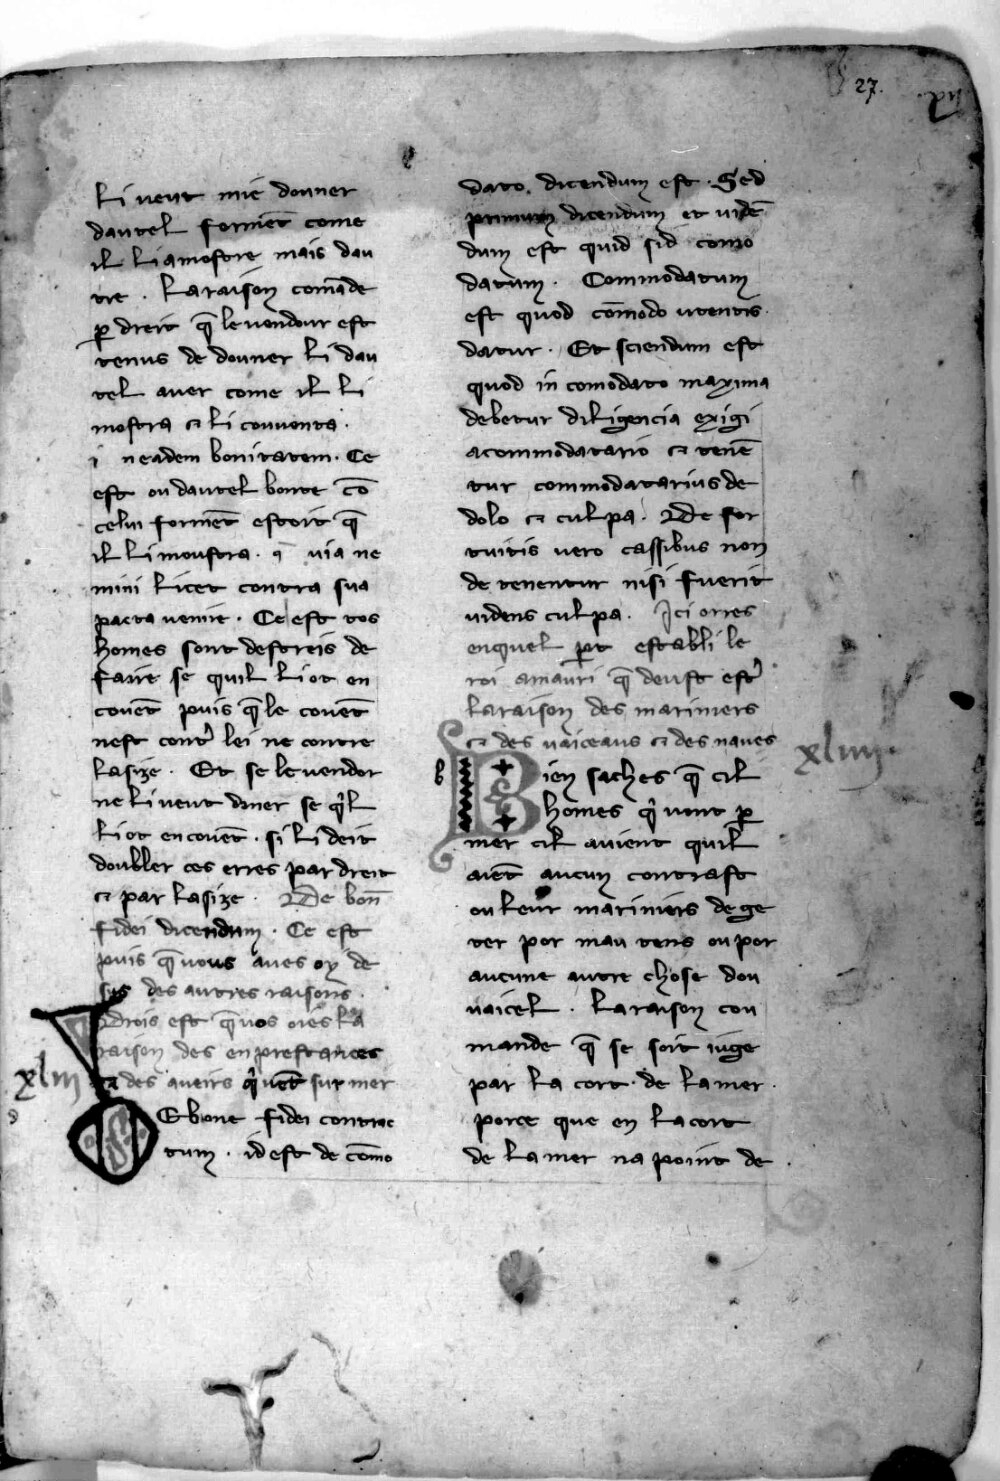 27.
li veut mie donner
dautel formēt come
il li amostre mais dau
tre . La raison comāde
ꝑ dreit q̄ le vendour est
tenus de douner li dau
tel auer come il li
mostra ⁊ li conuenta .
i neadem bonitatem . Ce
est ou dautel bonte cō
celui formēt estoit q̄
il li moustra . q̄ uia ne
mini licet contra sua
pacta uenire . Ce est tos
homes sont destreis de
faire se quil li ot en
couēt puis q̄ le couēt
nest contˀ lei ne contre
lasize . Et se le vendor
ne li veut doner se q̓l
li ot en couēt . si li deit
doubler ces erres par dreit
⁊ par lasize . De bon̄
fidei dicendum . Ce est
puis q̄ uous aues oy de
sus des autres raisons .
Drois est q̄ uos oies la
raison des enprestances
⁊ des aueirs q̓ uēt sur mer
xliii
d
E bone fidei contrac
tum . id est de cōmo
dato, dicendum est . Sed
primum dicendum et uidē
dum est quid sid como
datum . Commodatum
est quod cōmodo utentis .
datur . Et sciendum est
quod in comodato maxima
debetur diligencia exigi
acommodatario ⁊ tenē
tur commodatarius de
dolo ⁊ culpa . De for
tuitis uero cassibus non
de tenentur nisi fuerit
uidens culpa . Ici orres
enquel ꝑt establi le
roi amauri q̄ deust estˀ
la raison des mariniers
⁊ des vaiceaus ⁊ des naues
xliiii .
b
Bien saches q̄ cil
homes q̓ uont ꝑ
mer cil auient quil
aiēt aucun contrast
ou leur mariniers de ge
ter por mau tens ou por
aucune autre chose dou
uaicel . La raison cou
mande q̄ se soit iuge
par la cort . de la mer .
porce que en la cort
de la mer na point de